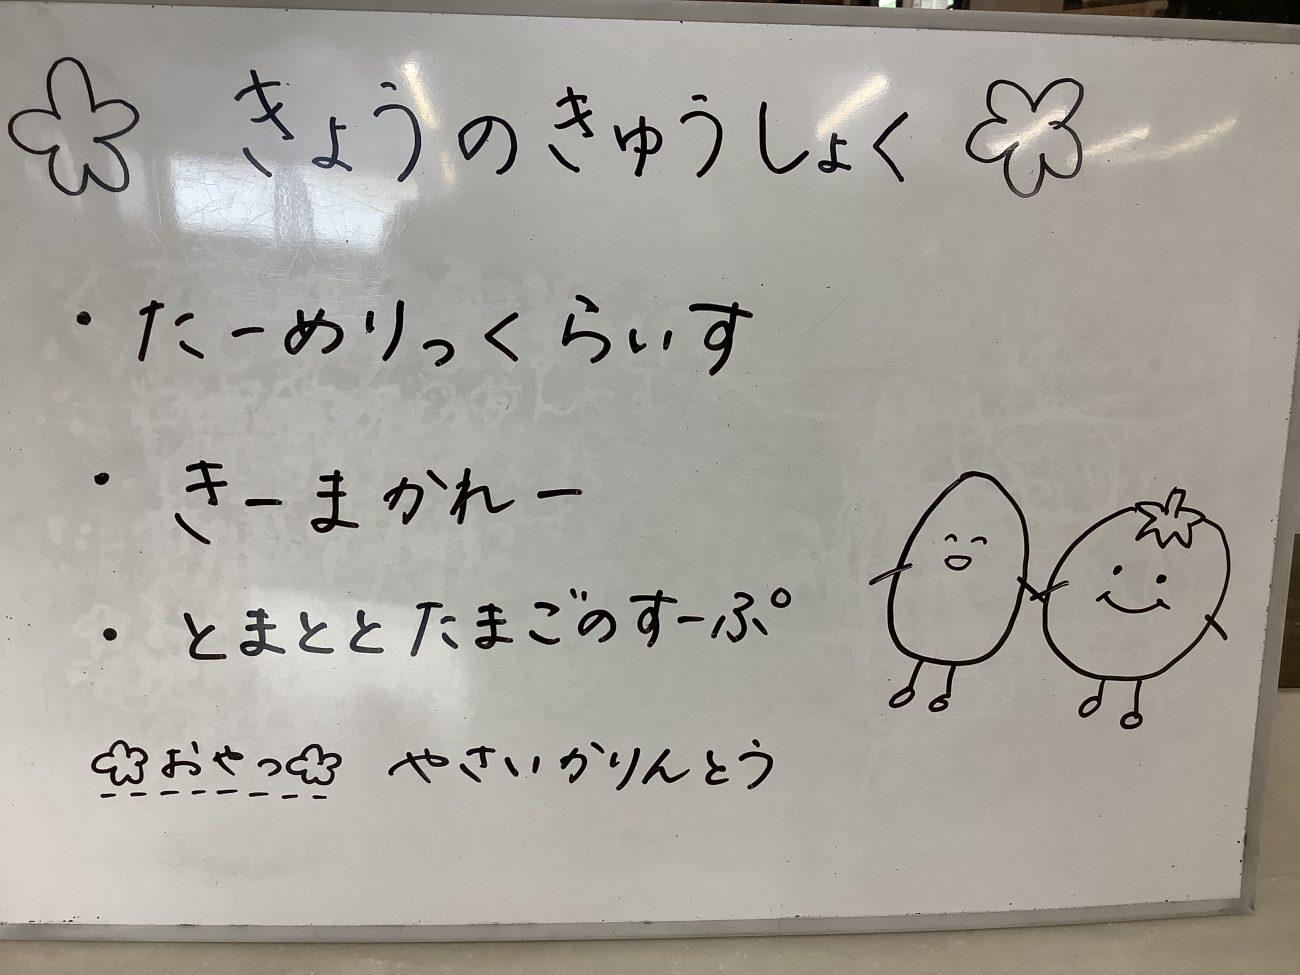 きょうのきゅうしょく
・たーめりっくらいす
・きーまかれー
・とまととたまごのすーぷ
おやつ やさいかりんとう